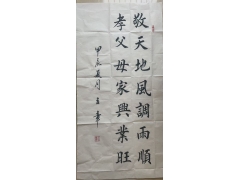 敬天地風調雨順
孝父母家興業旺
甲辰夏月 王章